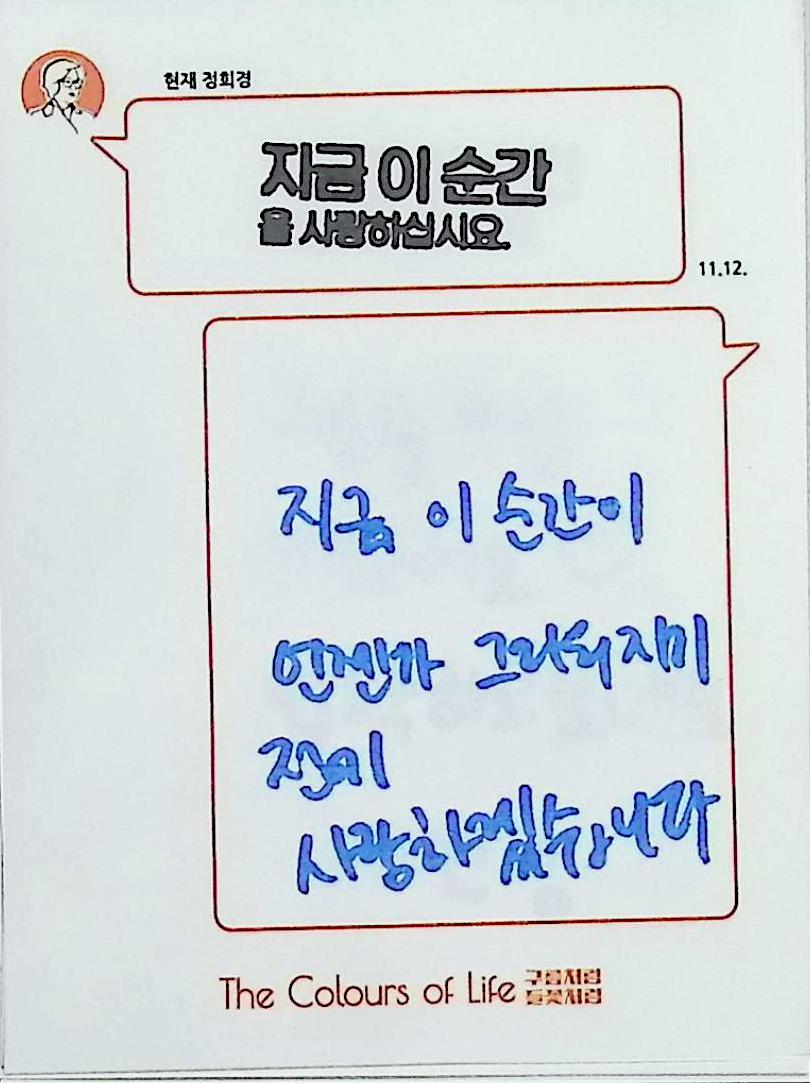 현재 정희경
지금 이 순간
을 사랑하십시요.
11.12.
지금 이 순간이
언젠가 그리워지기
전에
사랑하겠습니다
The Colours of Life 구름처럼
들꽃처럼